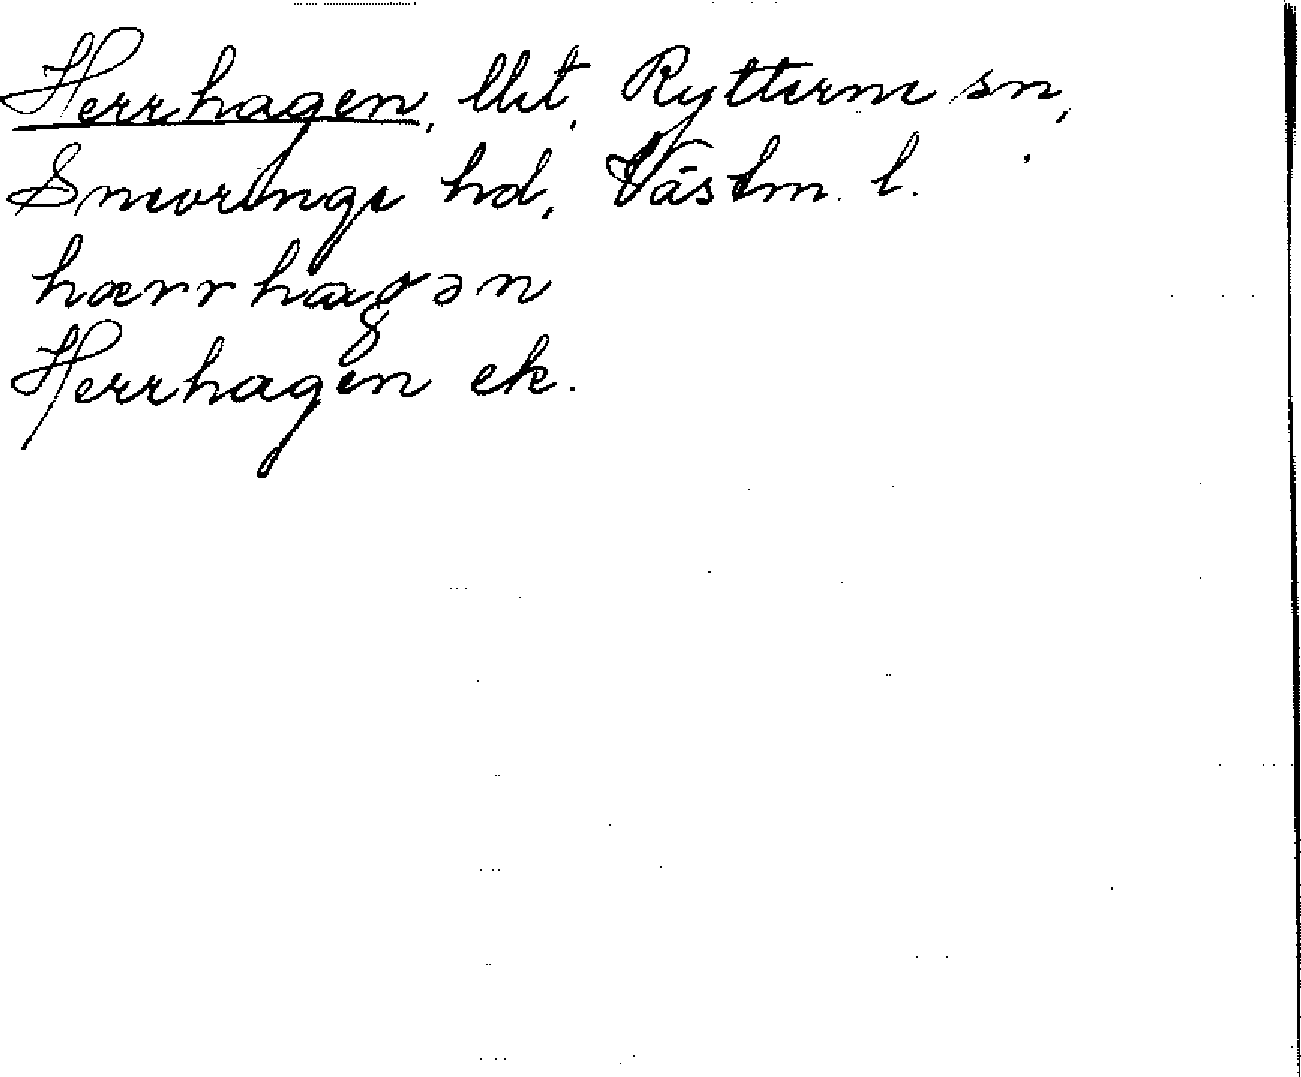 Herrhagen, lht, Rytterne sn,
Snevringe hd, Västm. l.
hærrhagən
Herrhagen ek.